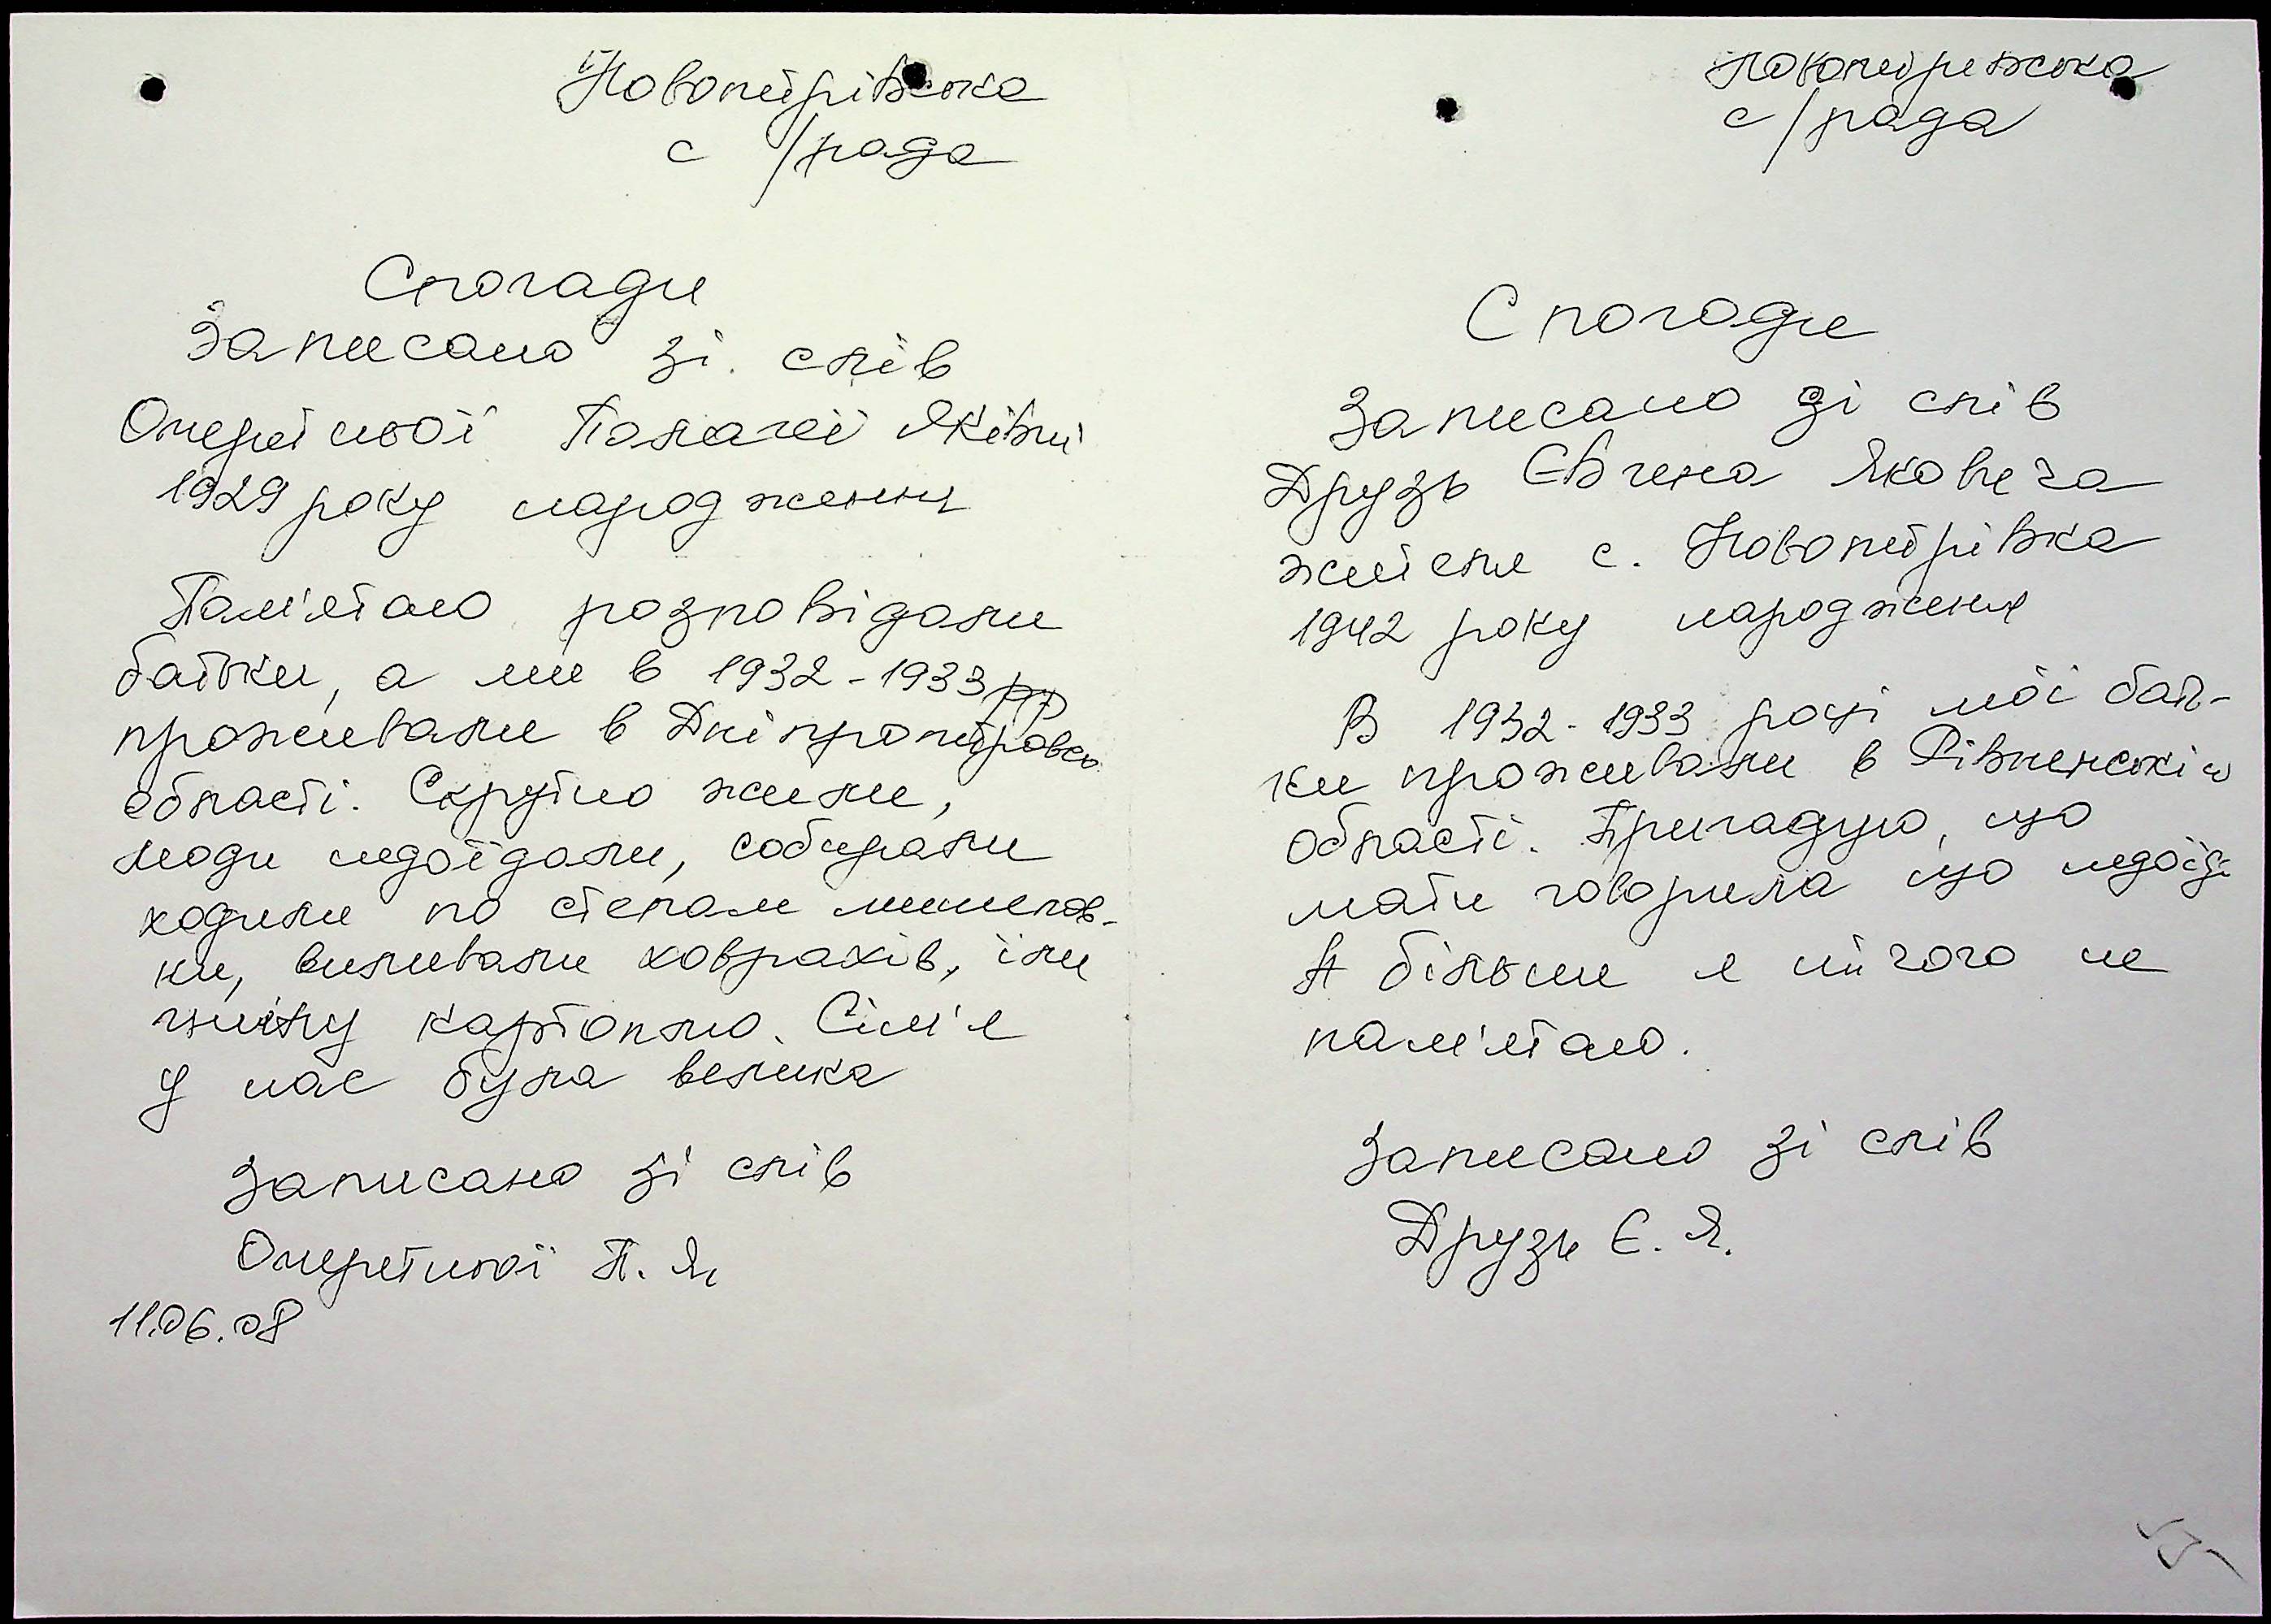 Новопетрівська
с/рада
Спогади
Записано зі слів
Палагеї Яківни
1929 року народження
Пам'ятаю розповідали
батьки, а ми в 1932-1933 рр
проживали в Дніпропетровсь
області. Скрутно жили,
люди недоїдали, собирали
ходили по степам
ки, виливали ховрахів, їли
гнилу картоплю. Сім'я
у нас була велика
Записано зі слів
П. Я.
11.06.08
Новопетрівська
с/рада
Спогади
Записано зі слів
Друзь Євгена Яковича
жителя с. Новопетрівка
1942 року народження
В 1932-1933 році мої бать-
ки проживали в Рівненській
області. Пригадую, що
мати говорила що недоїд
А більше я нічого не
пам'ятаю.
Записано зі слів
Друзь Є. Я.